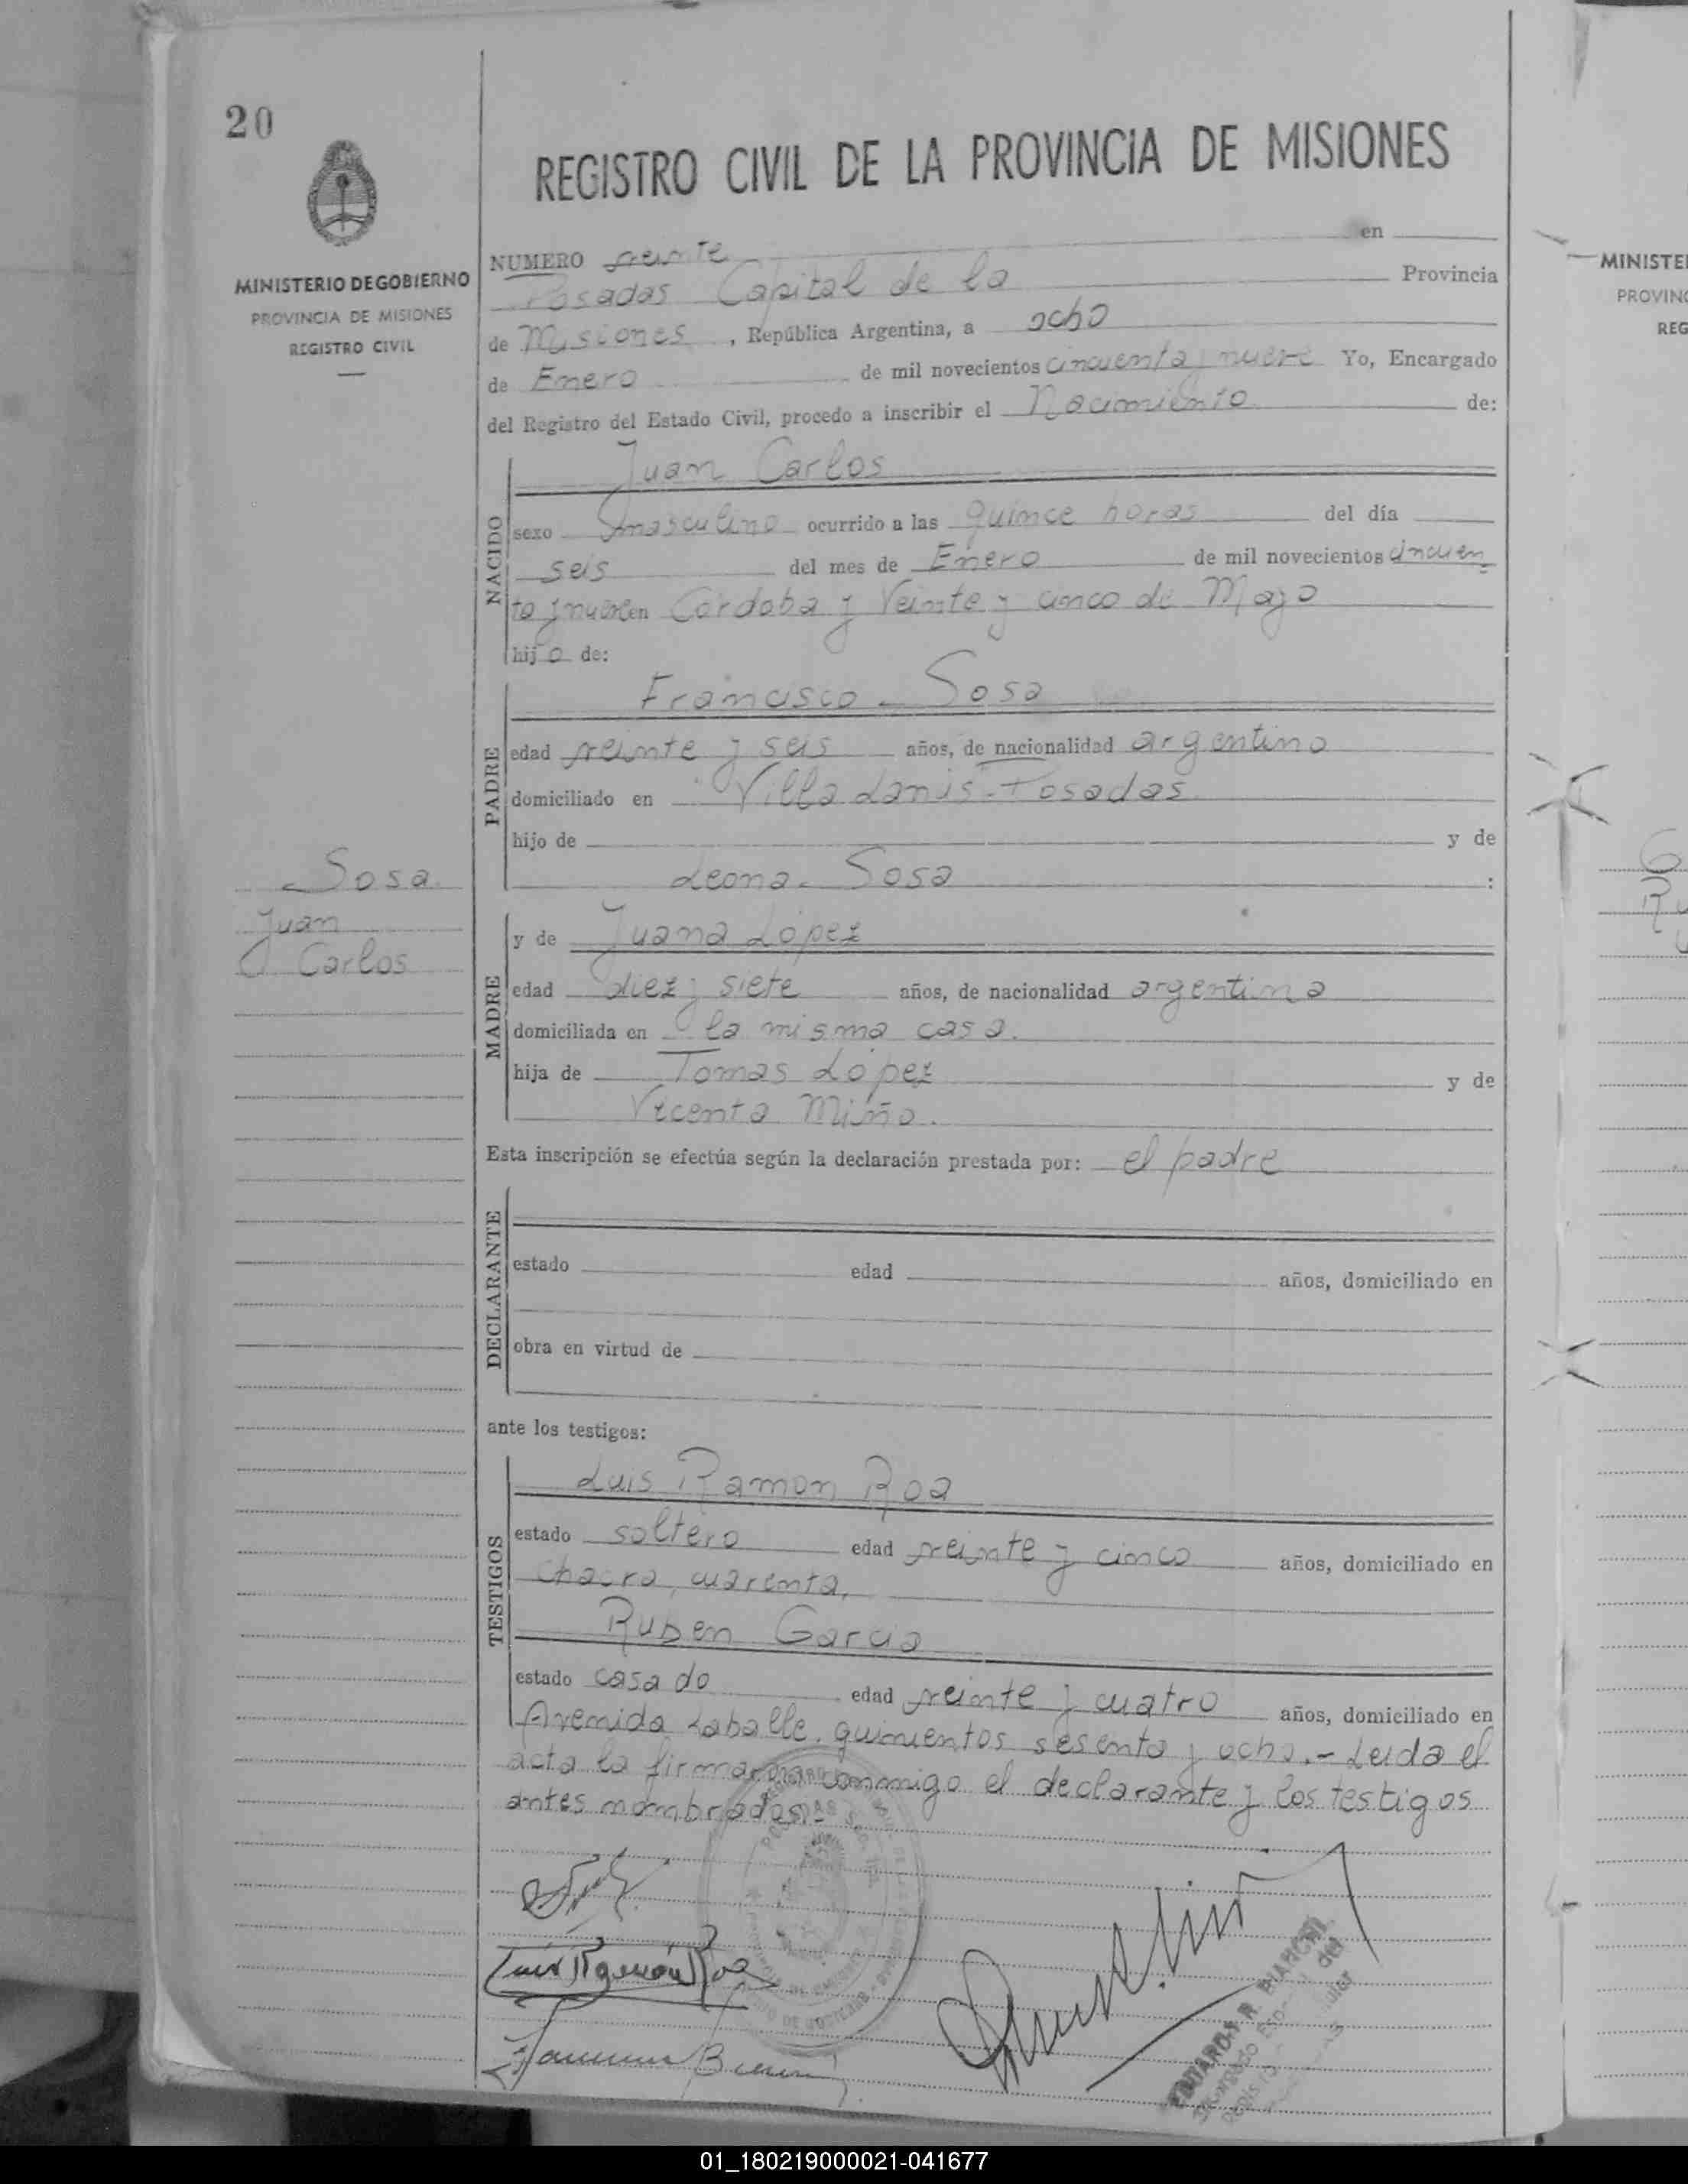 20
REGISTRO CIVIL DE LA PROVINCIA DE MISIONES
MINISTERIO DE GOBIERNO
PROVINCIA DE MISIONES
REGISTRO CIVIL
NUMERO veinte en
Posadas Capital de la Provincia
de Misiones, República Argentina, a ocho
de Enero de mil novecientos cincuenta y nueve Yo, Encargado
del Registro del Estado Civil, procedo a inscribir el Nacimiento de:
NACIDO
Juan Carlos
sexo masculino ocurrido a las quince horas del día
seis del mes de Enero de mil novecientos cincuen
ta y nueve en Cordoba y Veinte y cinco de Mayo
hijo de:
PADRE
Francisco - Sosa
edad veinte y seis años, de nacionalidad argentino
domiciliado en Villa Lanus - Posadas
hijo de y de
Leona - Sosa :
Sosa
Juan
Carlos
MADRE
y de Juana Lopez
edad diez y siete años, de nacionalidad argentina
domiciliada en la misma casa.
hija de Tomas Lopez y de
Vicenta Miño.
Esta inscripción se efectúa según la declaración prestada por: el padre
DECLARANTE
estado edad años, domiciliado en
obra en virtud de
ante los testigos:
TESTIGOS
Luis Ramon Roa
estado soltero edad veinte y cinco años, domiciliado en
Chacra, cuarenta,
Ruben Garcia
estado casado edad veinte y cuatro años, domiciliado en
Avenida Laballe, quinientos sesenta y ocho.- Leida el
acta la firmaron conmigo el declarante y los testigos
antes nombrados.-
Luis Ramón Roa
R. BIANCHI
del
MINISTE
PROVINC
REG
01_180219000021-041677